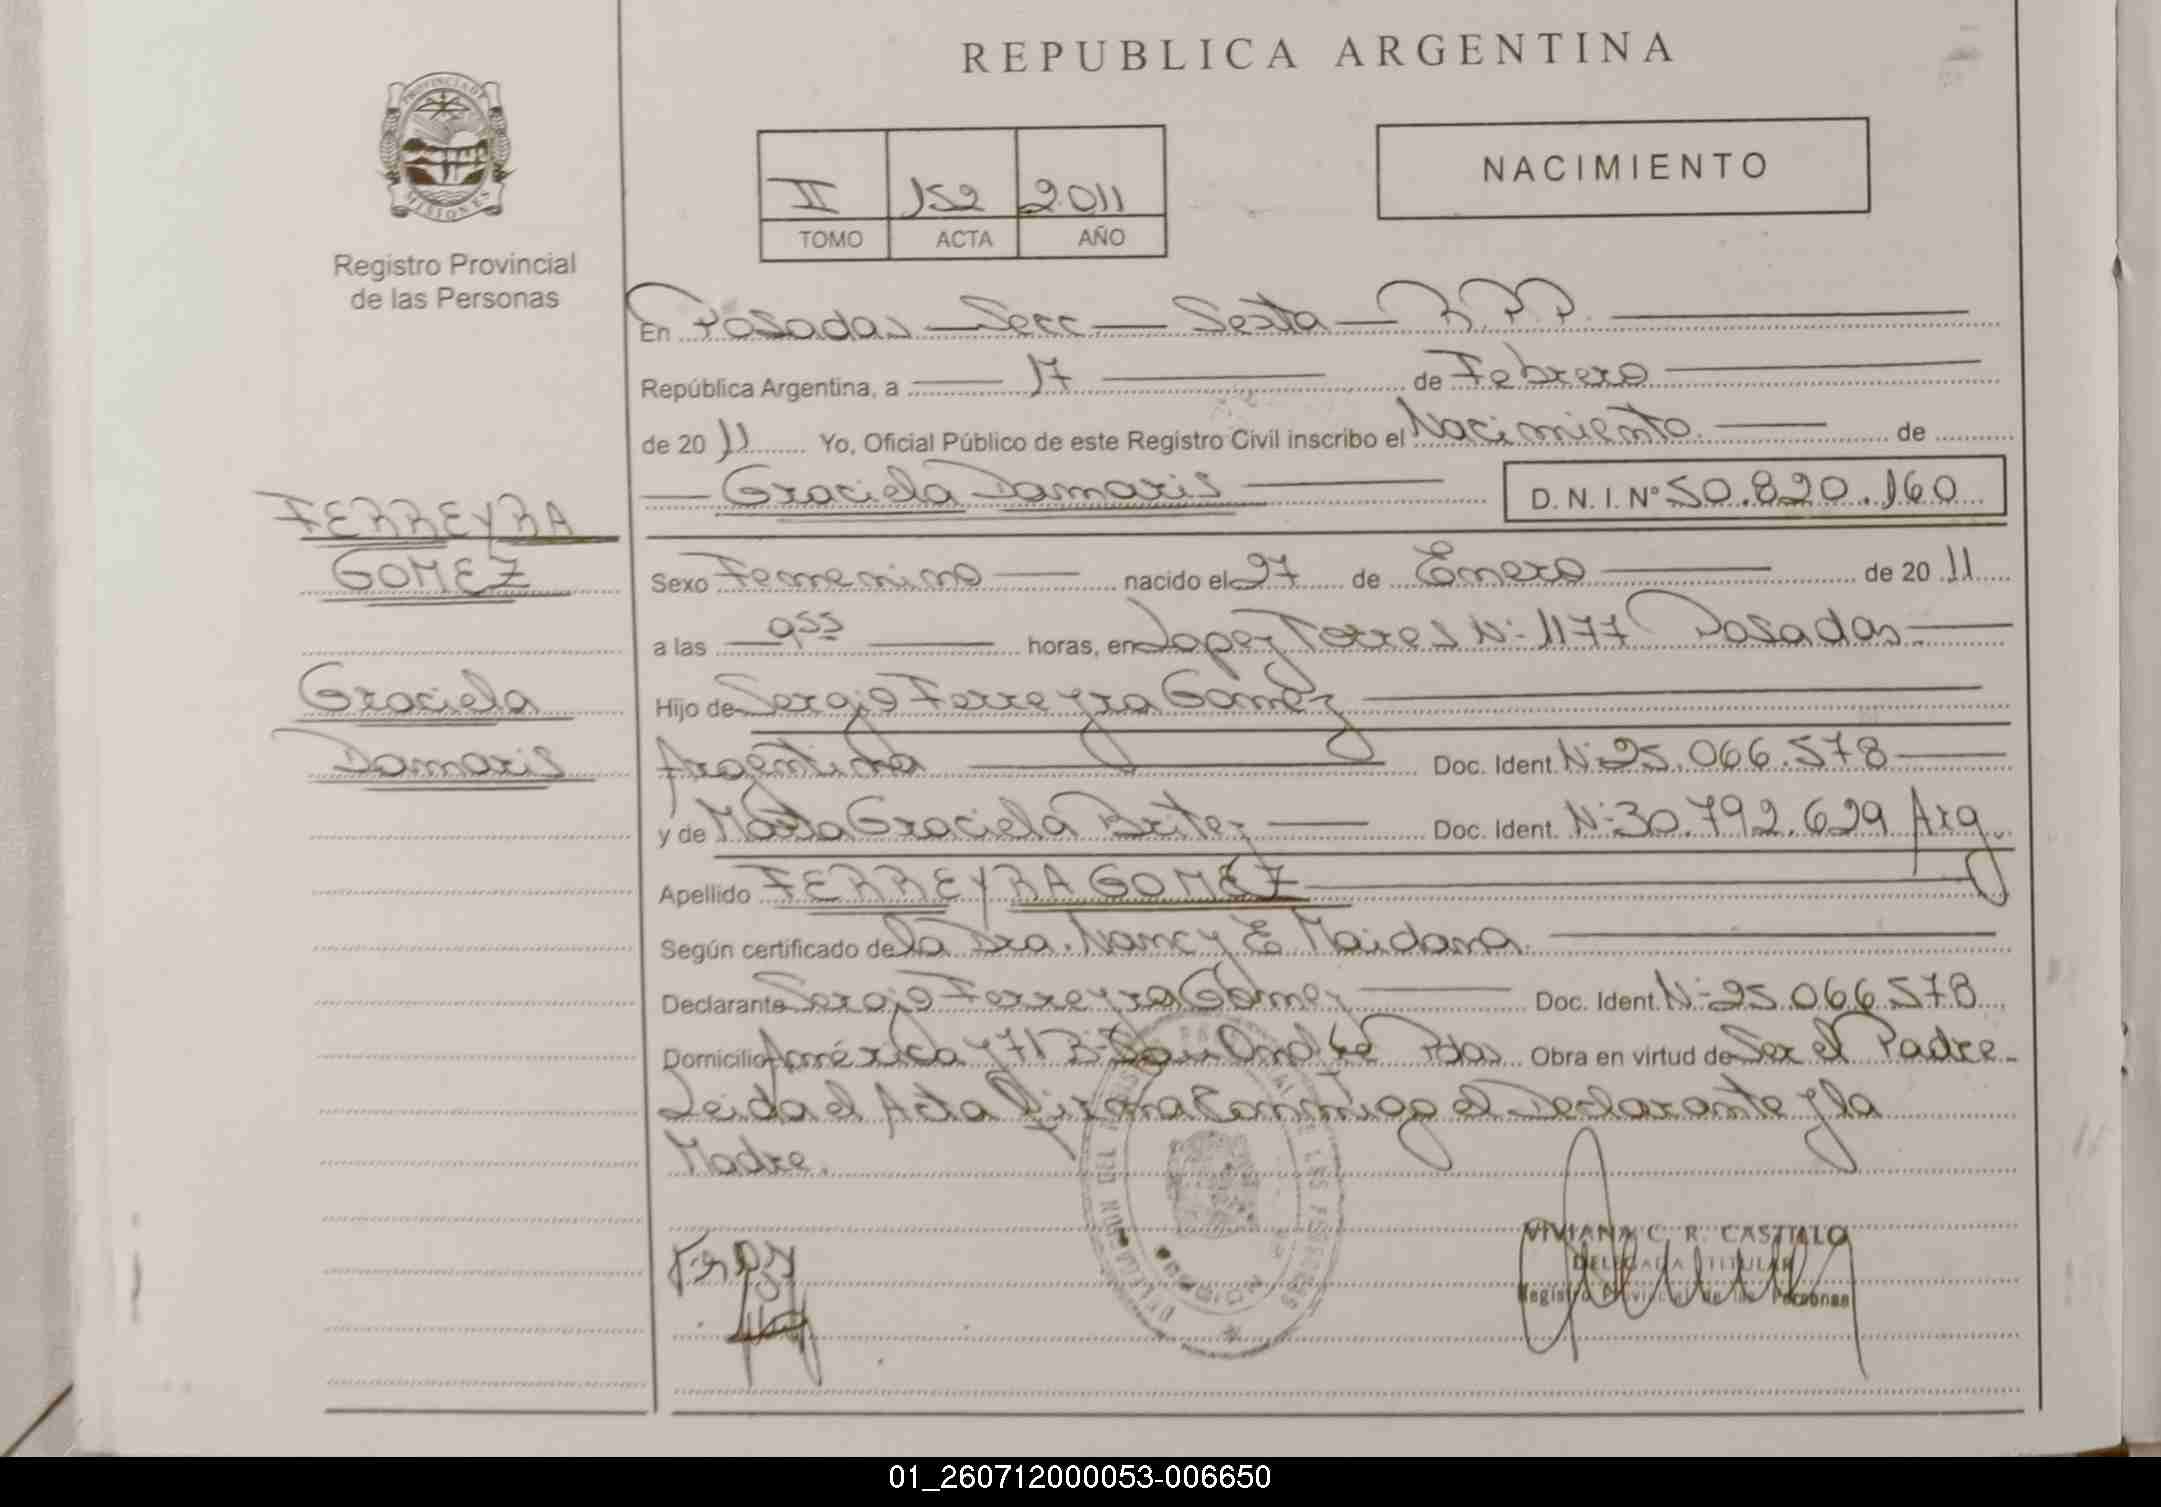 REPUBLICA ARGENTINA
PROVINCIA DE
MISIONES
Registro Provincial
de las Personas
II 152 2011
TOMO ACTA AÑO
NACIMIENTO
En Posadas Secc Sexta R.P.P.
República Argentina, a 17 de Febrero
de 2011 Yo, Oficial Público de este Registro Civil inscribo el Nacimiento de
Graciela Damaris D. N. I. Nº 50.820.160
FERREYRA
GOMEZ
Graciela
Damaris
Sexo Femenino nacido el 27 de Enero de 2011
a las 9⁵⁵ horas, en Lopez Torres Nº 1177 Posadas
Hijo de Sergio Ferreyra Gomez
Argentina Doc. Ident. Nº 25.066.578
y de Marta Graciela Britez Doc. Ident. Nº 30.792.629 Arg
Apellido FERREYRA GOMEZ
Según certificado de la Dra. Nancy E Maidana
Declarante Sergio Ferreyra Gomez Doc. Ident. Nº 25.066.578
Domicilio América Pdas Obra en virtud de Ser el Padre
Leida el Acta firma Conmigo el Declarante y la
Madre.
VIVIANA C. R. CASTILLO
DELEGADA TITULAR
Registro Provincial de las Personas
01_260712000053-006650